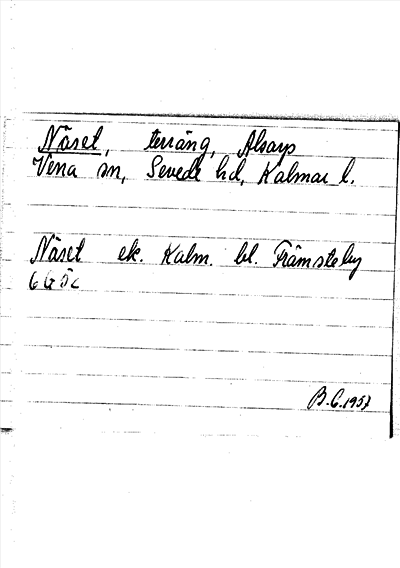 Näset, terräng, Alsarp
Vena sn, Sevede hd, Kalmar l.
Näset ek. Kalm. bl. Främsteby
6G5c
B.C. 1957